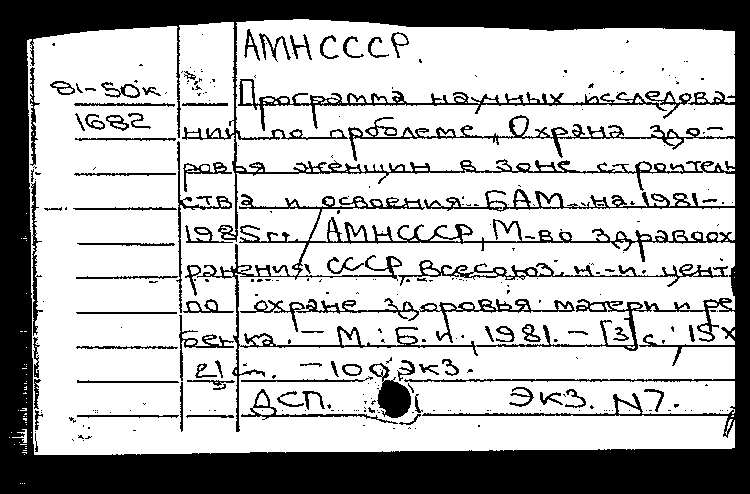 АМН СССР.
81-50к
1682
Программа научных исследова-
ний по проблеме „Охрана здо-
ровья женщин в зоне строитель
ства и освоения БАМ на 1981-
1985гг. / АМН СССР, М-во здравоох
ранения СССР, Всесоюз. н.-и. центр
по охране здоровья матери и ре
бенка. - М.: Б. и., 1981. - [3] с.; 15х
21 см. - 100 экз.
ДСП. Экз. N7.